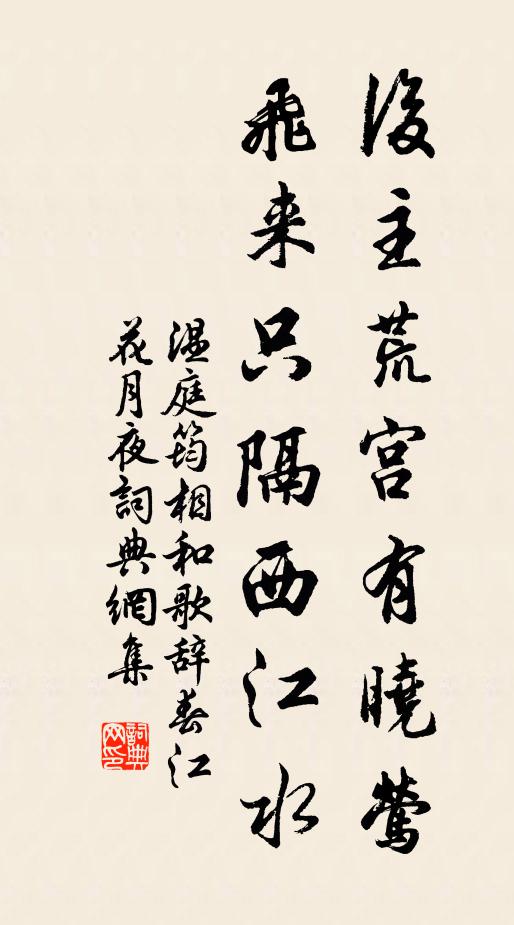 後主荒宮有曉鶯
飛来只隔西江水
温庭筠相和歌辞春江
花月夜詞典網集
詞典
网印